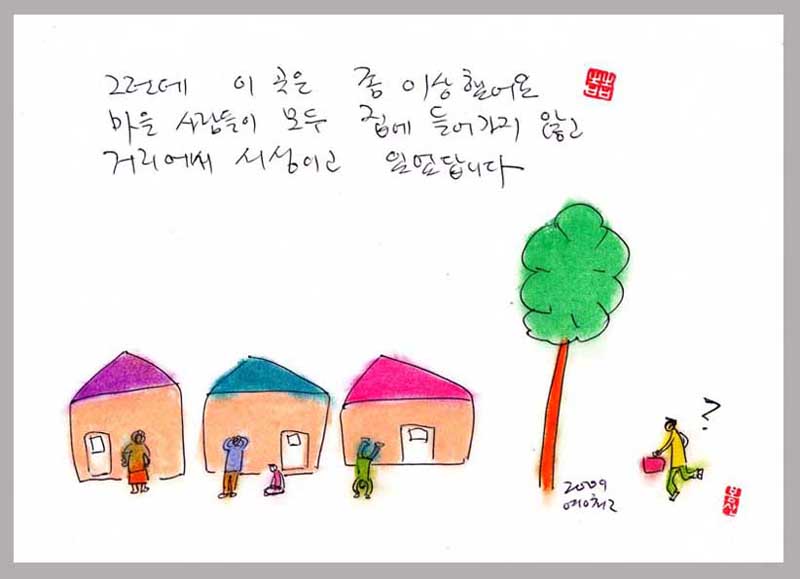 그런데 이 곳은 좀 이상했어요
마을 사람들이 모두 집에 들어가지 않고
거리에서 서성이고 있었답니다
?
2009